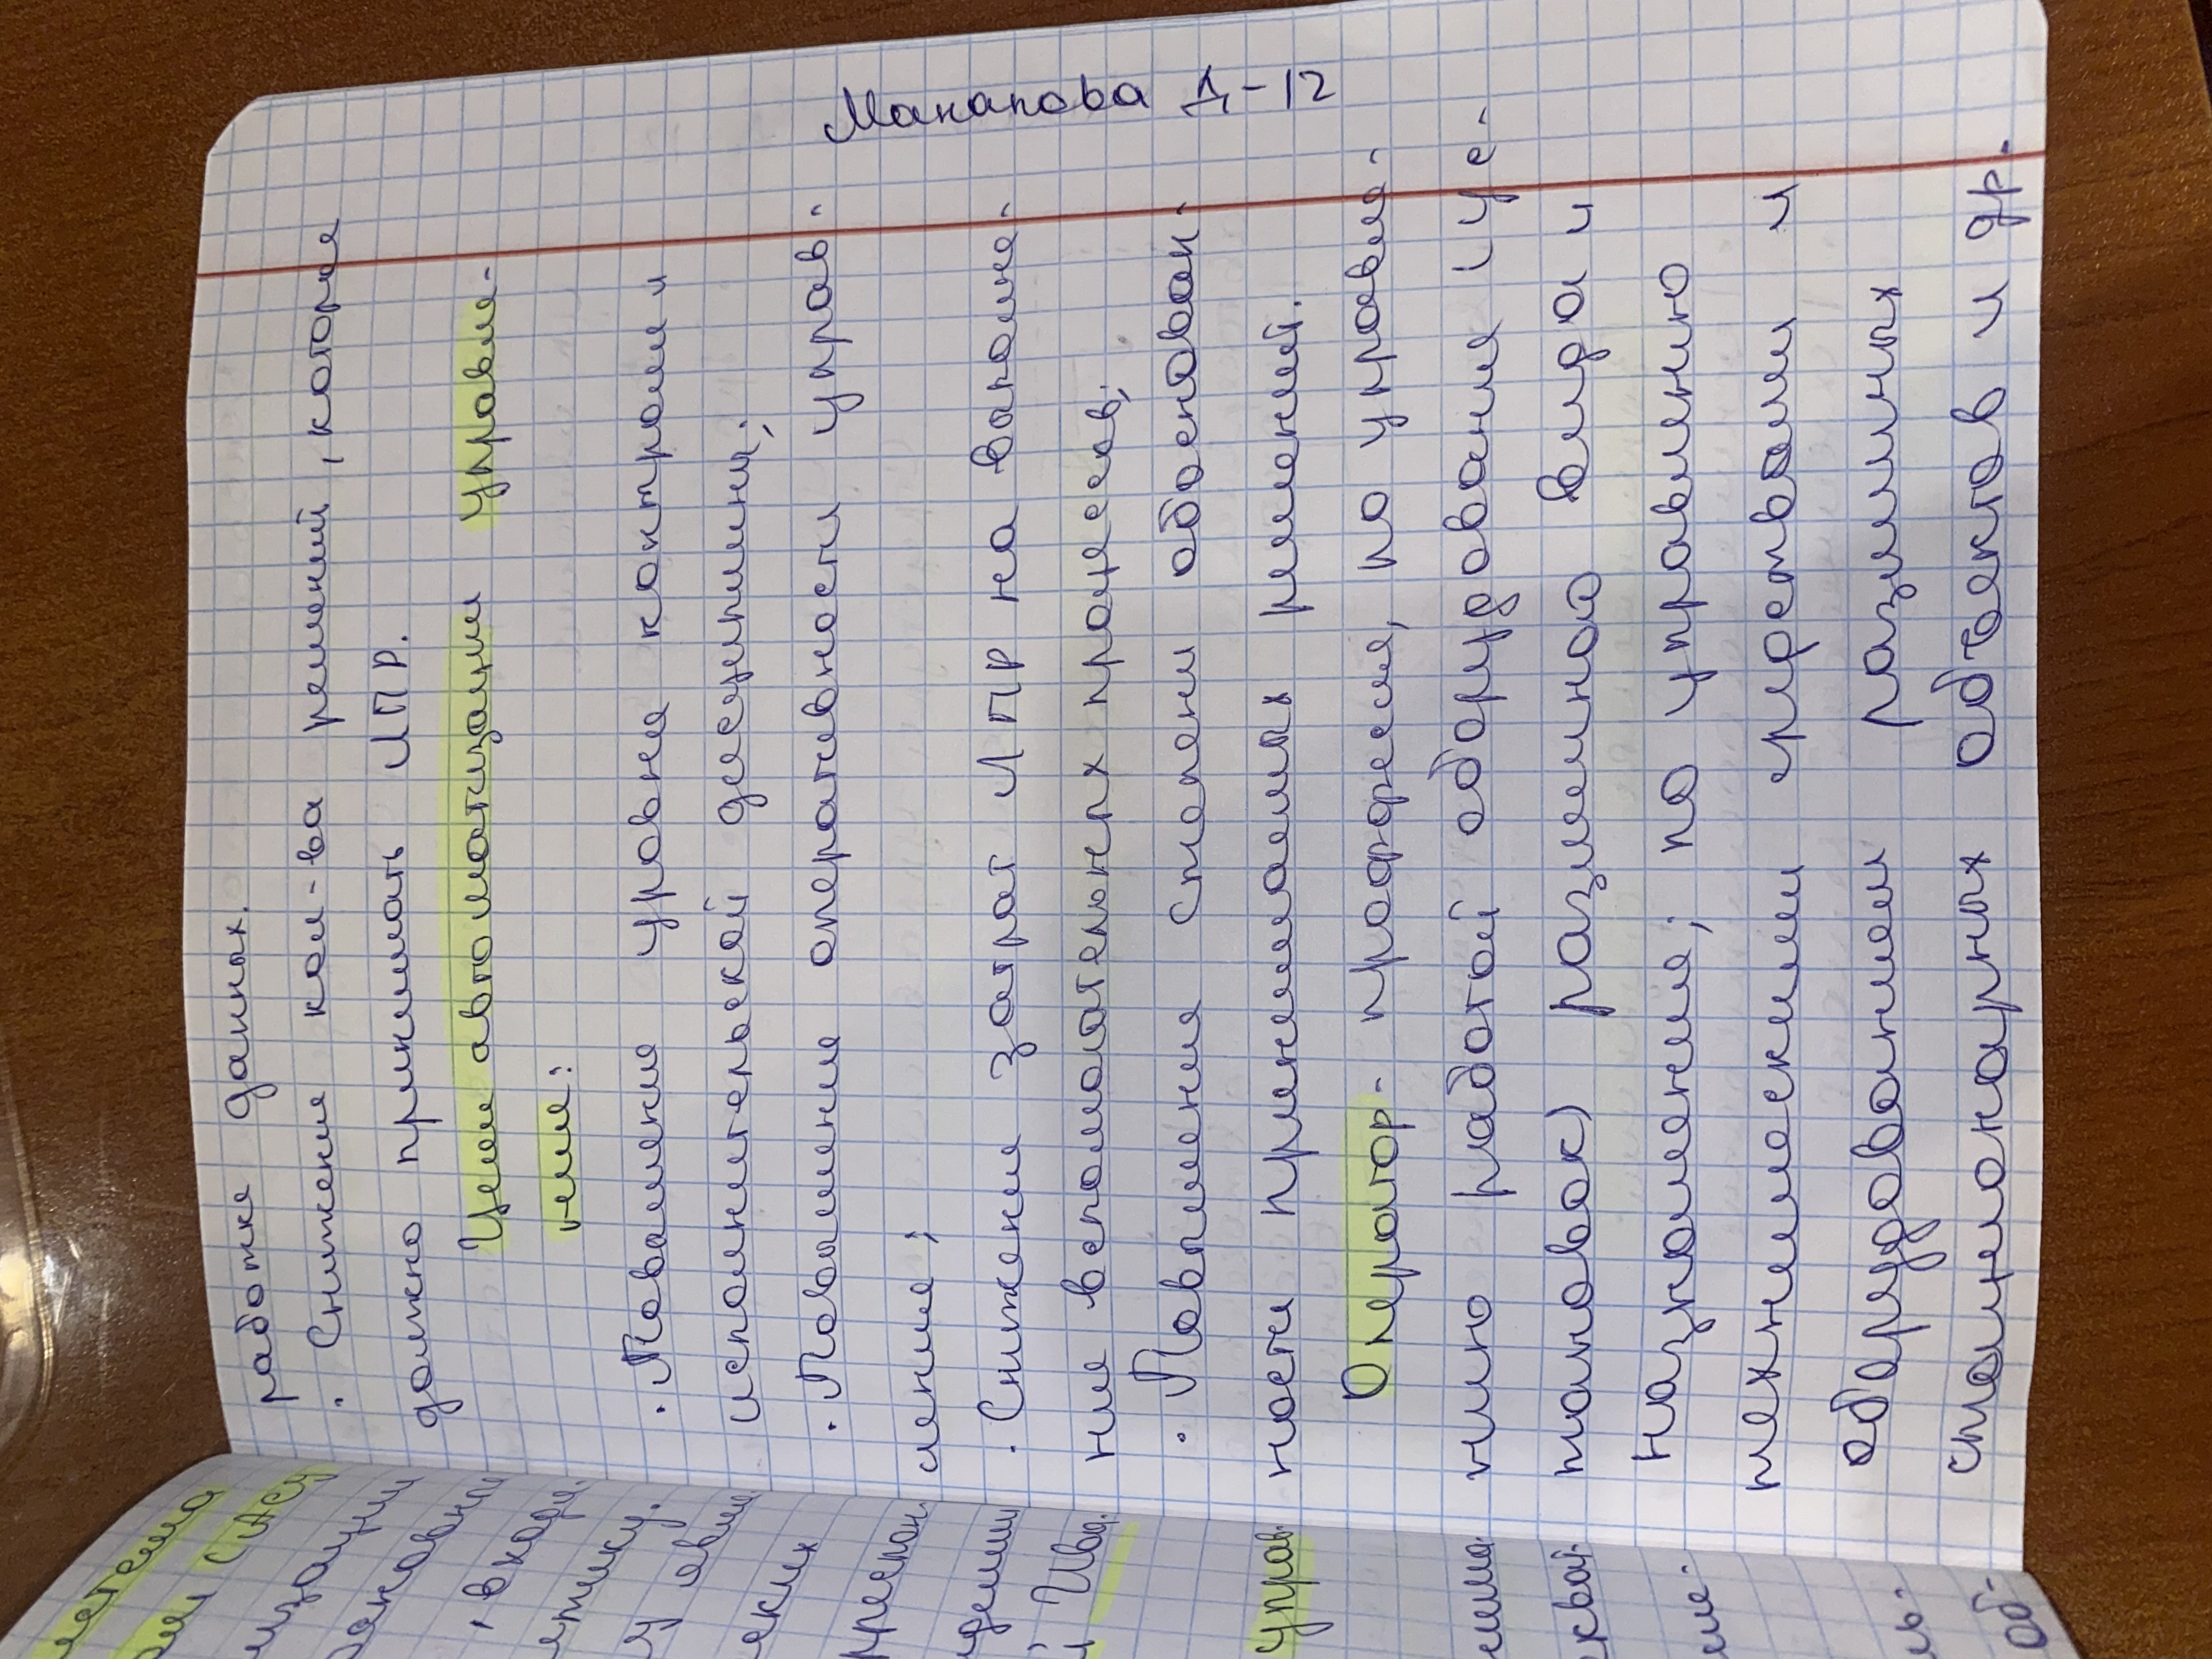 работке данных.
· Снижение кол-ва решений, которые
должно принимать ЛПР.
Цели автоматизации управле-
ния:
· Повышение уровня контроля и
исполнительской дисциплины;
· Повышение оперативности управ-
ления;
· Снижение затрат ЛПР на выполне-
ние вспомогательных процессов;
· Повышение степени обоснован-
ности принимаемых решений.
Оператор - профессия, по управле-
нию работой оборудования (ус-
тановок) различного вида и
назначения; по управлению
техническими средствами и
оборудованием различных
стационарных объектов и др.
Манапова Д-12